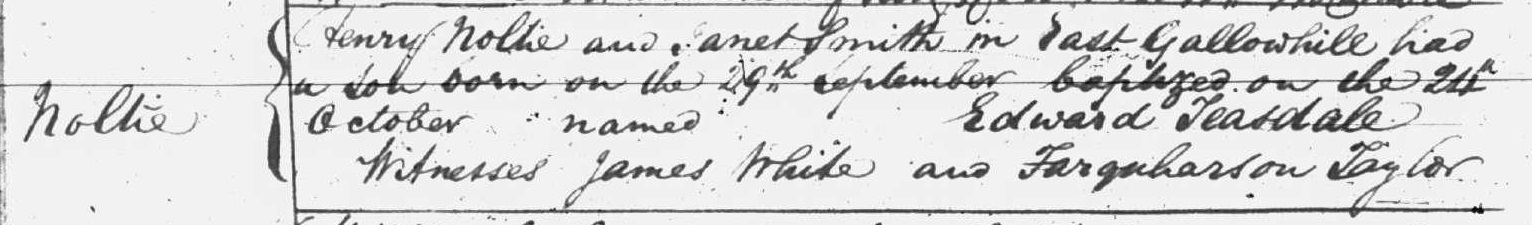 Henry Noltie and Janet Smith in East Gallowhill had
a son born on the 29th September baptized on the 24th
Noltie
October named Edward Teasdale
Witnesses James White and Farquharson Taylor